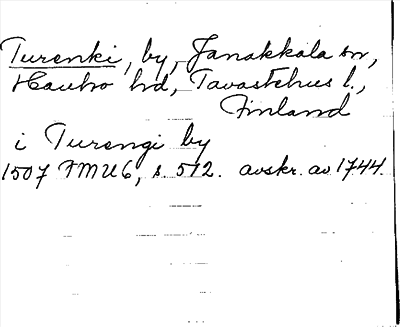 Turenki, by, Janakkala sn,
Hauho hd, Tavastehus l.,
Finland
i Turengi by
1507 FMU6, s. 512. avskr. av 1744.